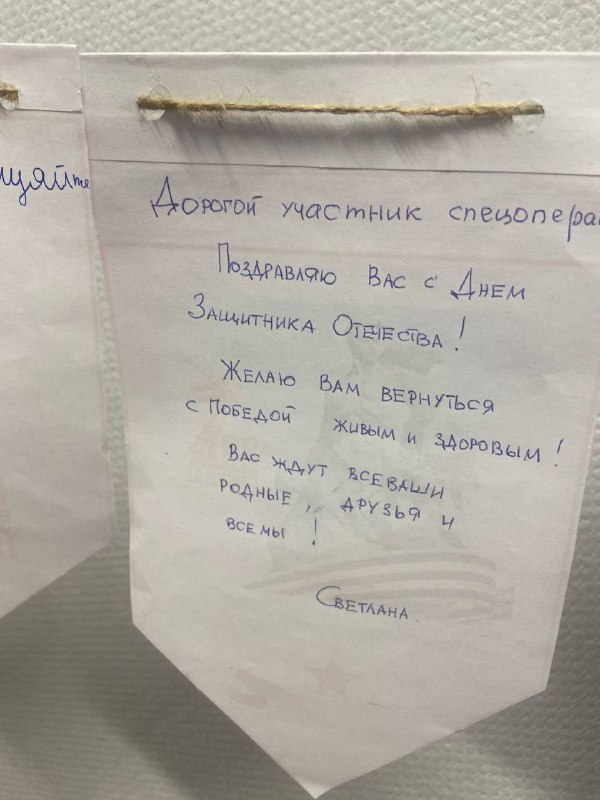 щайте
Дорогой участник спецопера
Поздравляю Вас с Днем
Защитника Отечества!
Желаю Вам вернуться
с Победой живым и здоровым!
Вас ждут все ваши
родные, друзья и
все мы!
Светлана.